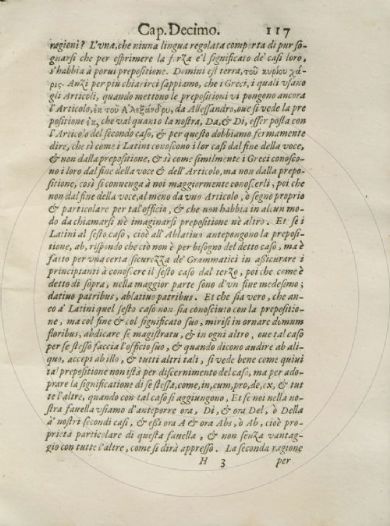 Cap. Decimo. 117
ragioni? L'vna, che niuna lingua regolata comporta di pur so-
gnarsi che per esprimere la forza e'l significato de' casi loro,
s'habbia à porui prepositione. Domini est terra, τοῦ κυρίου χά-
ρις. Anzi per più chiarirci sappiamo, che i Greci, i quali vsano
gli Articoli, quando mettono le prepositioni vi pongono ancora
l'Articolo, ἐκ τοῦ Ἀλεξάνδρου, da Alessandro, oue si vede la pre
positione ἐκ, che val quanto la nostra, Da, & Di, esser posta con
l'Articolo del secondo caso, & per questo dobbiamo fermamente
dire, che sì come i Latini conoscono i lor casi dal fine della voce,
& non dalla prepositione, & sì come similmente i Greci conosco-
no i loro dal fine della voce & dell'Articolo, ma non dalla prepo-
sitione, così si conuenga à noi maggiormente conoscerli, poi che
non dal fine della voce, al meno da vno Articolo, ò segno proprio
& particolare per tal officio, & che non habbia in alcun mo-
do da chiamarsi nè imaginarsi prepositione nè altro. Et se i
Latini al sesto caso, cioè all'Ablatiuo antepongono la preposi-
tione, ab, rispondo che ciò non è per bisogno del detto caso, ma è
fatto per vna certa sicurezza de' Grammatici in assicurare i
principianti à conoscere il sesto caso dal terzo, poi che come è
detto di sopra, nella maggior parte sono d'vn fine medesimo;
datiuo patribus, ablatiuo patribus. Et che sia vero, che an-
co à Latini quel sesto caso non sia conosciuto con la prepositio-
ne, ma col fine & col significato suo, mirisi in ornare domum
floribus, abdicare se magistratu, & in ogni altro, oue tal caso
per se stesso faccia l'officio suo, & quando dicono andire ab ali-
quo, accepi ab illo, & tutti altri tali, si vede bene come quiui
tal prepositione non istà per discernimento del caso, ma per ado-
prare la significatione di se stessa, come, in, cum, pro, de, ex, & tut
te l'altre, quando con tal caso si aggiungono, Et se noi nella no-
stra fauella vsiamo d'anteporre ora, Di, & ora Del, ò Della
à' nostri secondi casi, & essi ora A & ora Abs, ò Ab, ciò è pro-
prietà particolare di questa fauella, & non senza vantag-
gio con tutte l'altre, come si dirà appresso. La seconda ragione
H 3 per